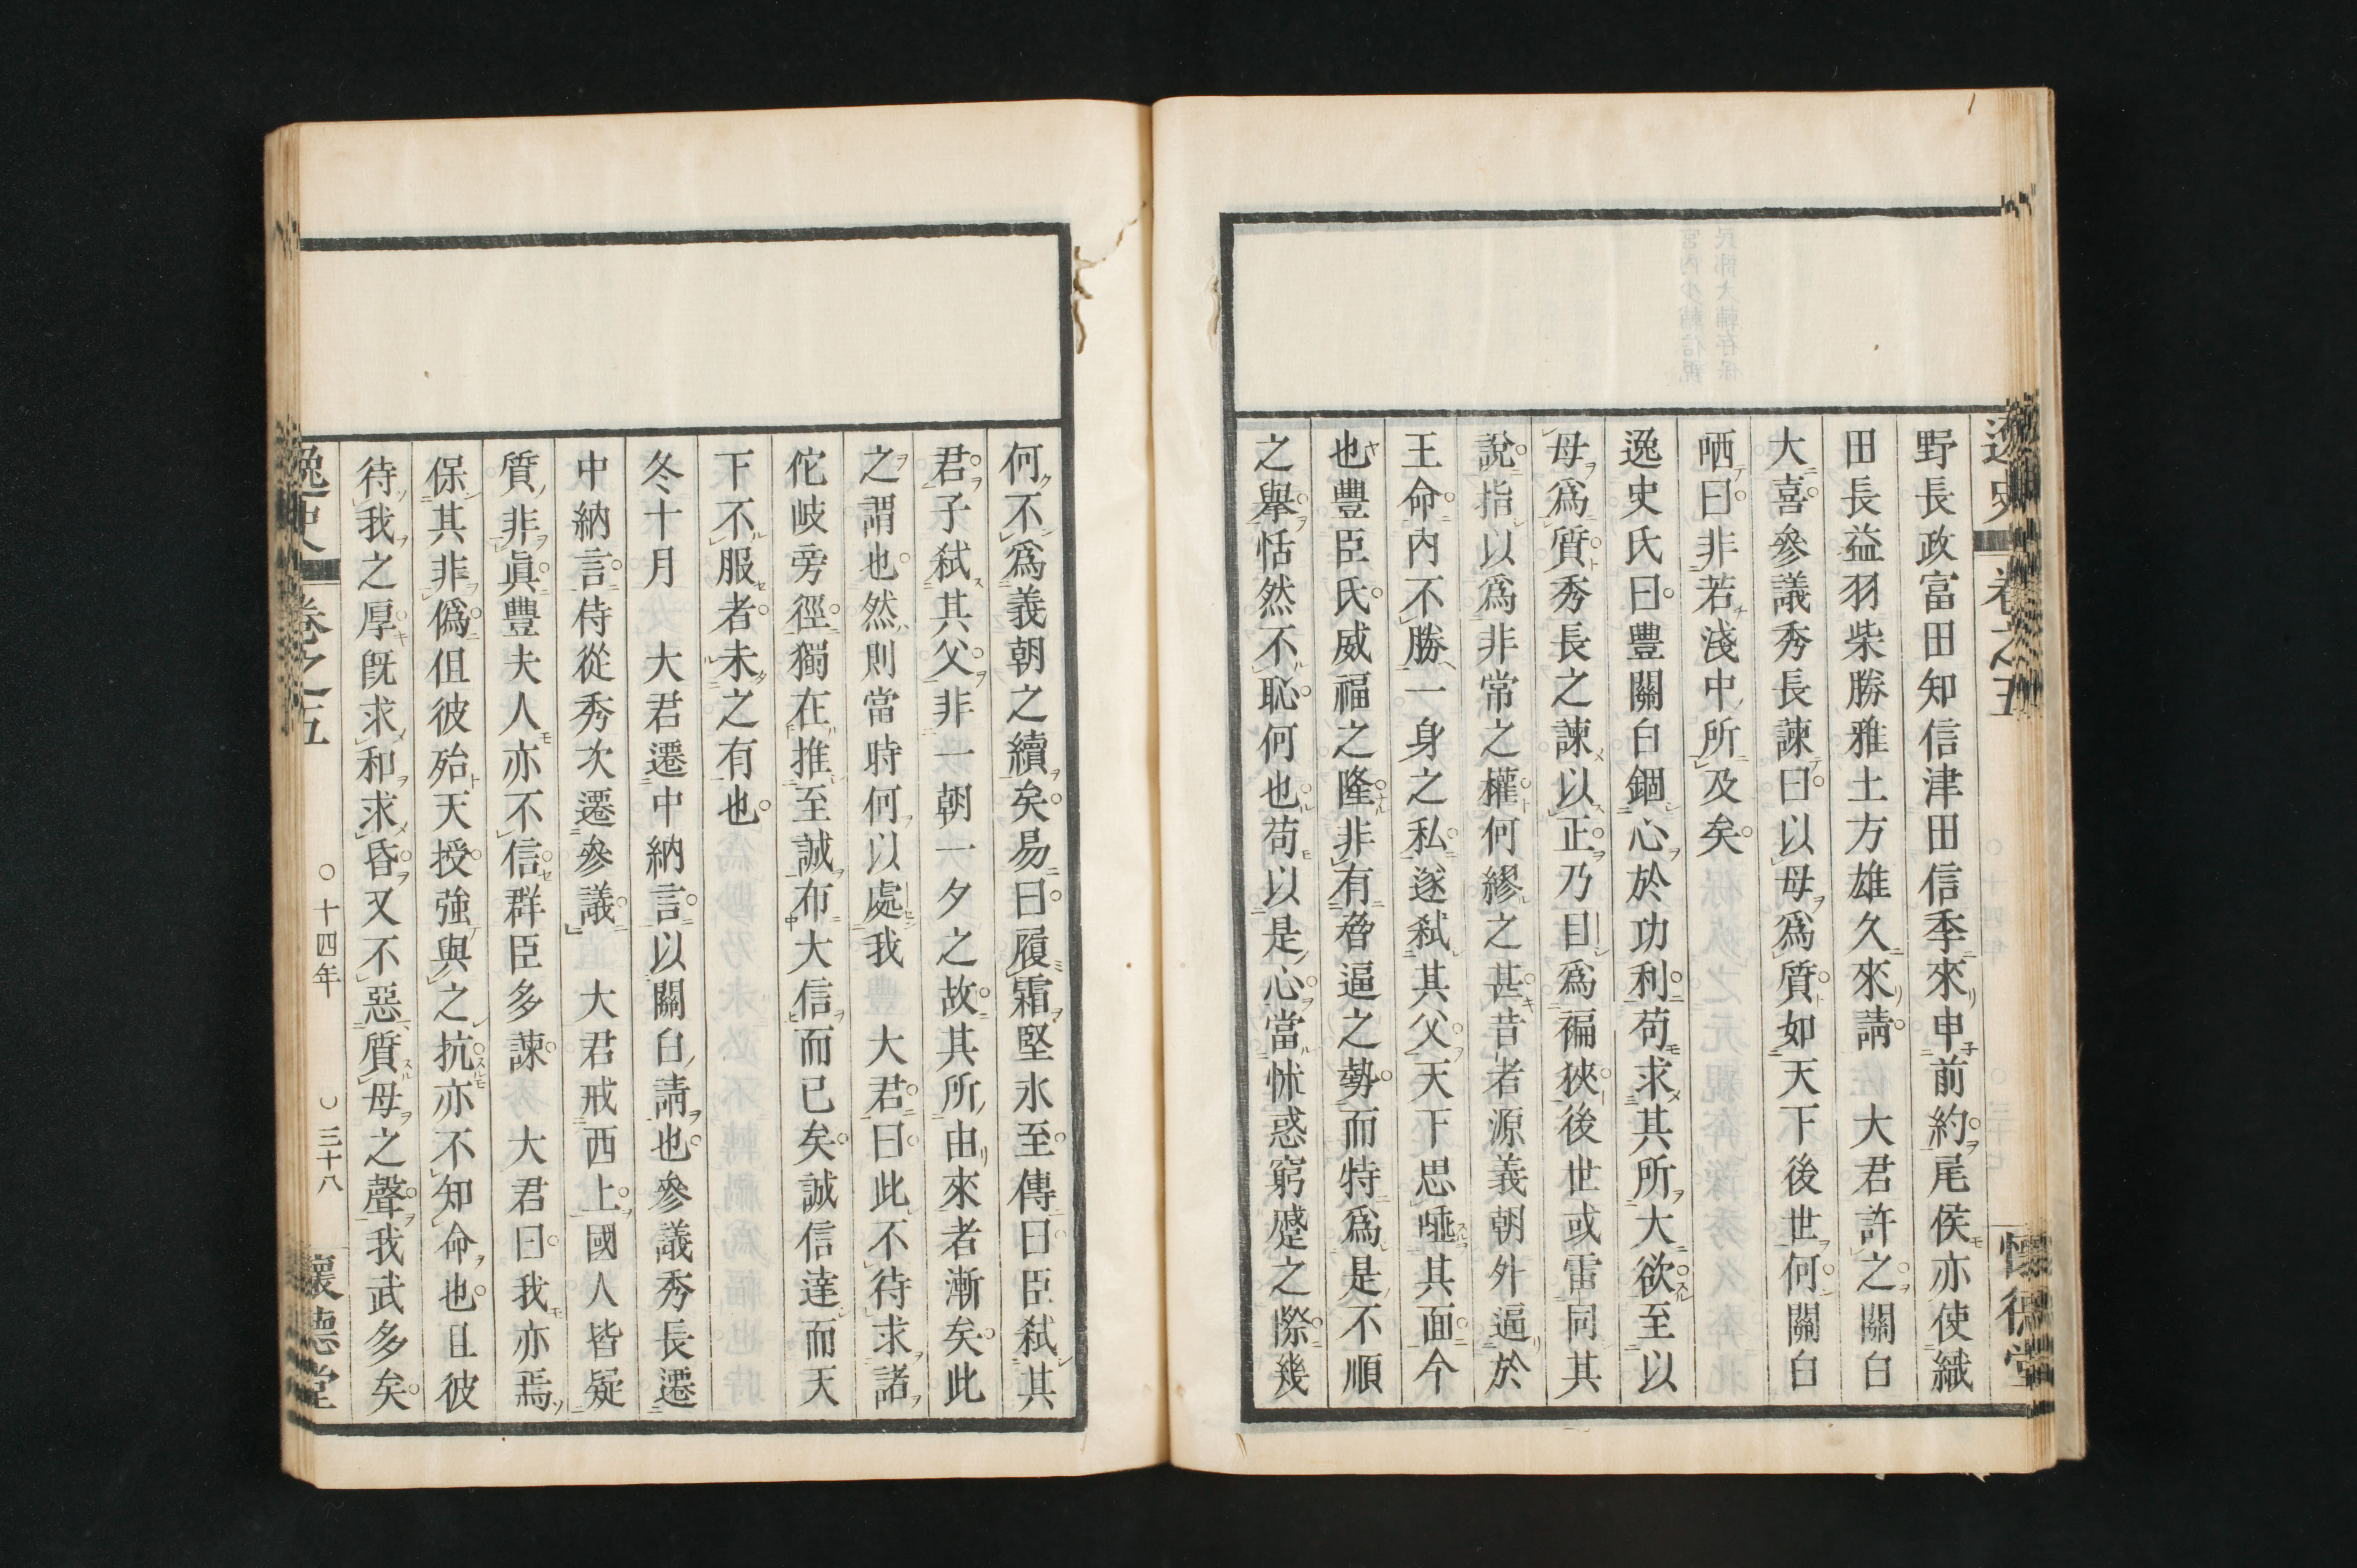 逸史 卷之五 懷德堂
野長政富田知信津田信季來申前約尾侯亦使織
田長益羽柴勝雅土方雄久來請 大君許之關白
大喜參議秀長諫曰以母爲質如天下後世何關白
哂曰非若淺中所及矣
逸史氏曰豐關白錮心於功利苟求其所大欲至以
母爲質秀長之諫以正乃目爲褊狹後世或雷同其
說指以爲非常之權何繆之甚昔者源義朝外逼於
王命內不勝一身之私遂弑其父天下思唾其面今
也豐臣氏威福之隆非有脅逼之勢而特爲是不順
之舉恬然不恥何也苟以是心當怵惑窮蹙之際幾
何不爲義朝之續矣易曰履霜堅氷至傳曰臣弑其
君子弑其父非一朝一夕之故其所由來者漸矣此
之謂也然則當時何以處我 大君曰此不待求諸
佗岐旁徑獨在推至誠布大信而已矣誠信達而天
下不服者未之有也
冬十月 大君遷中納言以關白請也參議秀長遷
中納言侍從秀次遷參議 大君戒西上國人皆疑
質非眞豐夫人亦不信群臣多諫 大君曰我亦焉
保其非僞但彼殆天授強與之抗亦不知命也且彼
待我之厚旣求和求昏又不惡質母之聲我武多矣
逸史 卷之五 〇十四年 〇三十八 懷德堂